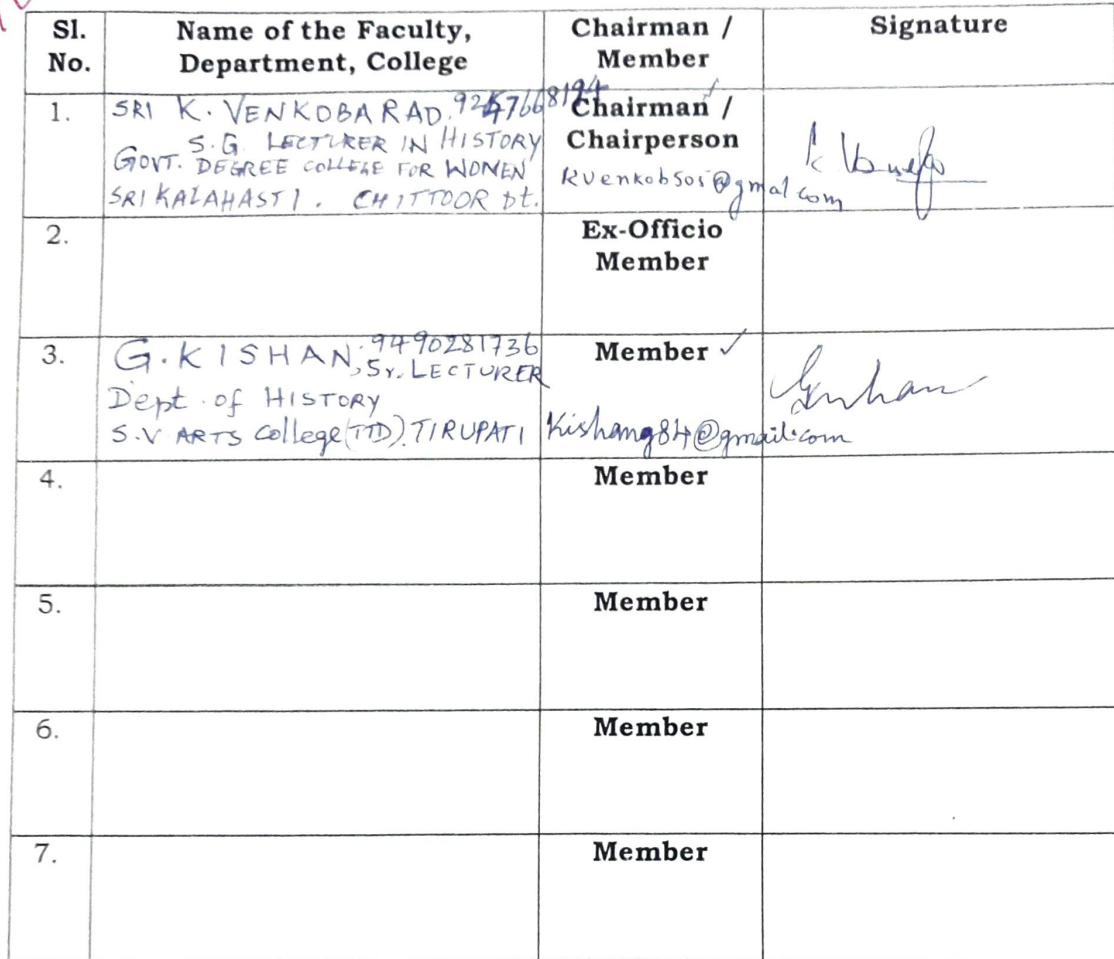 Sl. No. Name of the Faculty, Department, College Chairman / Member Signature
1. SRI K. VENKOBA RAO. 9247668194 Chairman /
S.G. LECTURER IN HISTORY Chairperson
GOVT. DEGREE COLLEGE FOR WOMEN
SRI KALAHASTI. CHITTOOR Dt. kvenkob505@gmal com
2. Ex-Officio
Member
3. G. KISHAN, 9490281736 Member ✓
Sr. LECTURER
Dept. of HISTORY
S.V ARTS College (TTD). TIRUPATI Kishang84@gmail.com
4. Member
5. Member
6. Member
7. Member